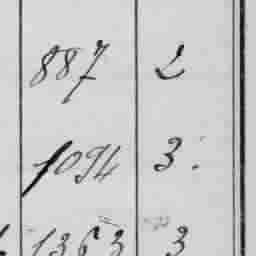 887 2
1094 3.
1363 3